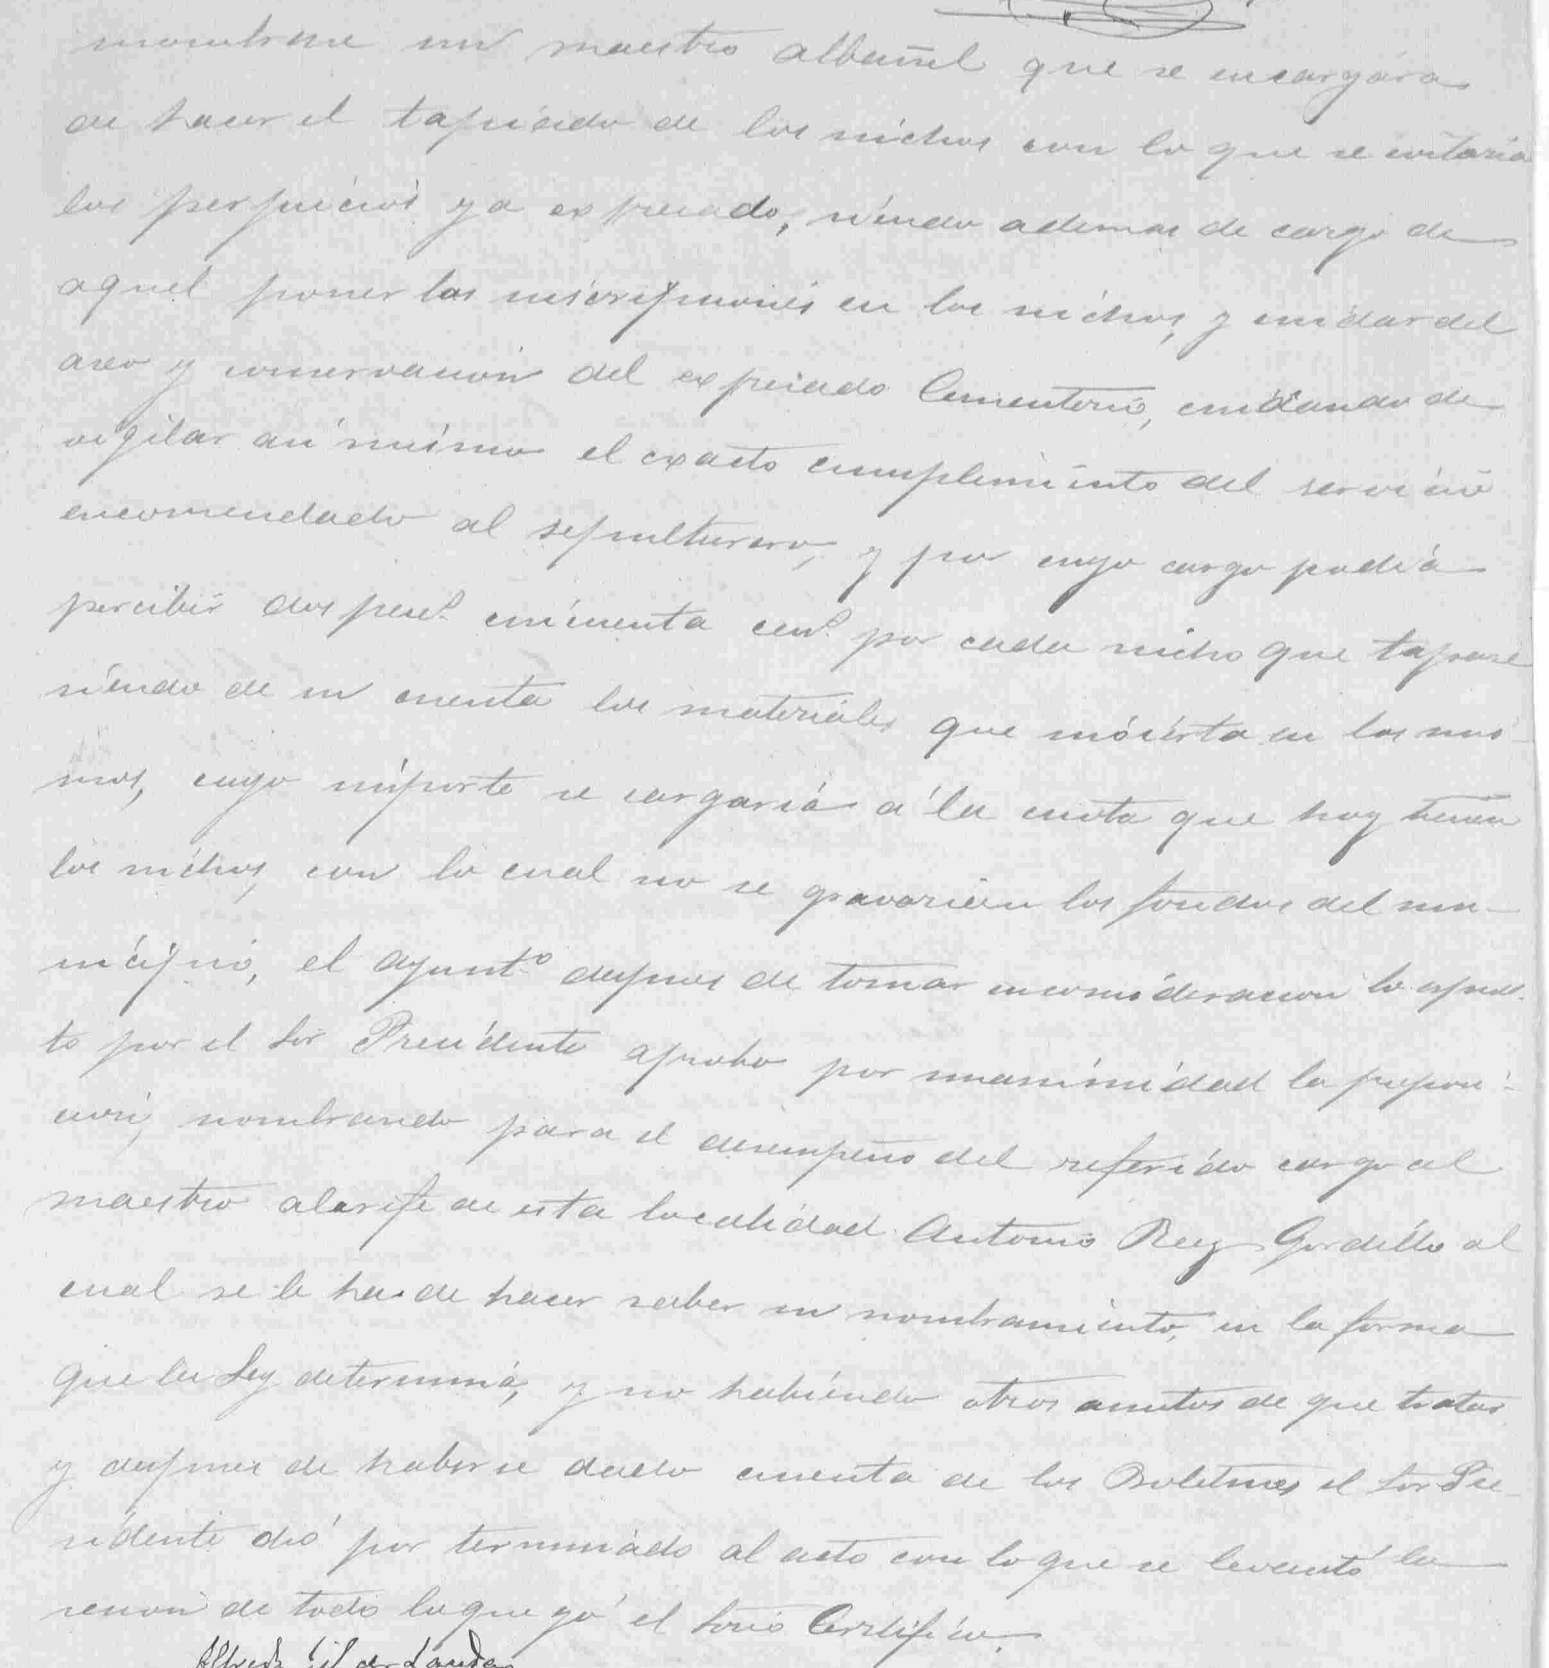 nombrase un maestro albañil que se encargara
de hacer el tapiado de los nichos con lo que se evitaria
los perjuicios ya expresado, siendo ademas de cargo de
aquel poner las inscripciones en los nichos, y cuidar del
aseo y conservacion del expresado Cementerio, cuidando de
vigilar asi mismo el exacto cumplimiento del servicio
encomendado al sepulturero, y por cuyo cargo podia
percibir dos pesets cincuenta cents por cada nicho que tapase
siendo de su cuenta los materiales que invierta en los mis-
mos, cuyo importe se cargaria á la cuota que hoy tienen
los nichos, con lo cual no se gravarian los fondos del mu-
nicipio, el Ayuntº despues de tomar en consideracion lo espues-
to por el Sor Presidente aprobo por unanimidad la proposi-
cion, nombrando para el desempeño del referido cargo al
maestro alarife de esta localidad Antonio Rey Gordillo al
cual se le ha de hacer saber su nombramiento, en la forma
que la Ley determina, y no habiendo otros asuntos de que tratar
y despues de haberse dado cuenta de los Boletines el Sor Pre-
sidente dió por terminado al acto con lo que se levantó la
sesion de todo lo que yo el Srio Certifico.
Alfredo Gil de